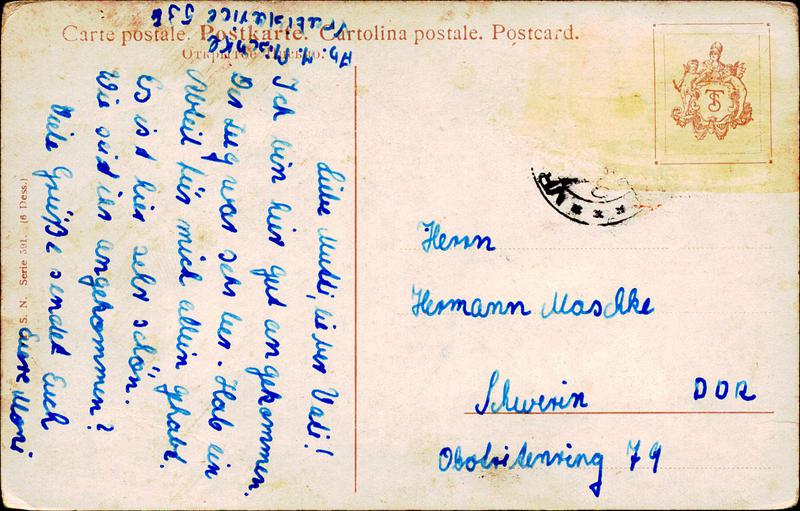 Carte postale. Postkarte. Cartolina postale. Postcard.
Открытое письмо.
Ab. M. Maschke
Vratislavice 532
Liebe Mutti, lieber Vati!
Ich bin hier gut angekommen.
Der Zug war sehr leer. Hab ein
Abteil für mich allein gehabt.
Es ist hier sehr schön.
Wie seid ihr angekommen?
Viele Grüße sendet Euch
Eure Moni
S. N. Serie 391. (6 Dess.)
TS
Herrn
Hermann Maschke
Schwerin DDR
Obotritenring 79